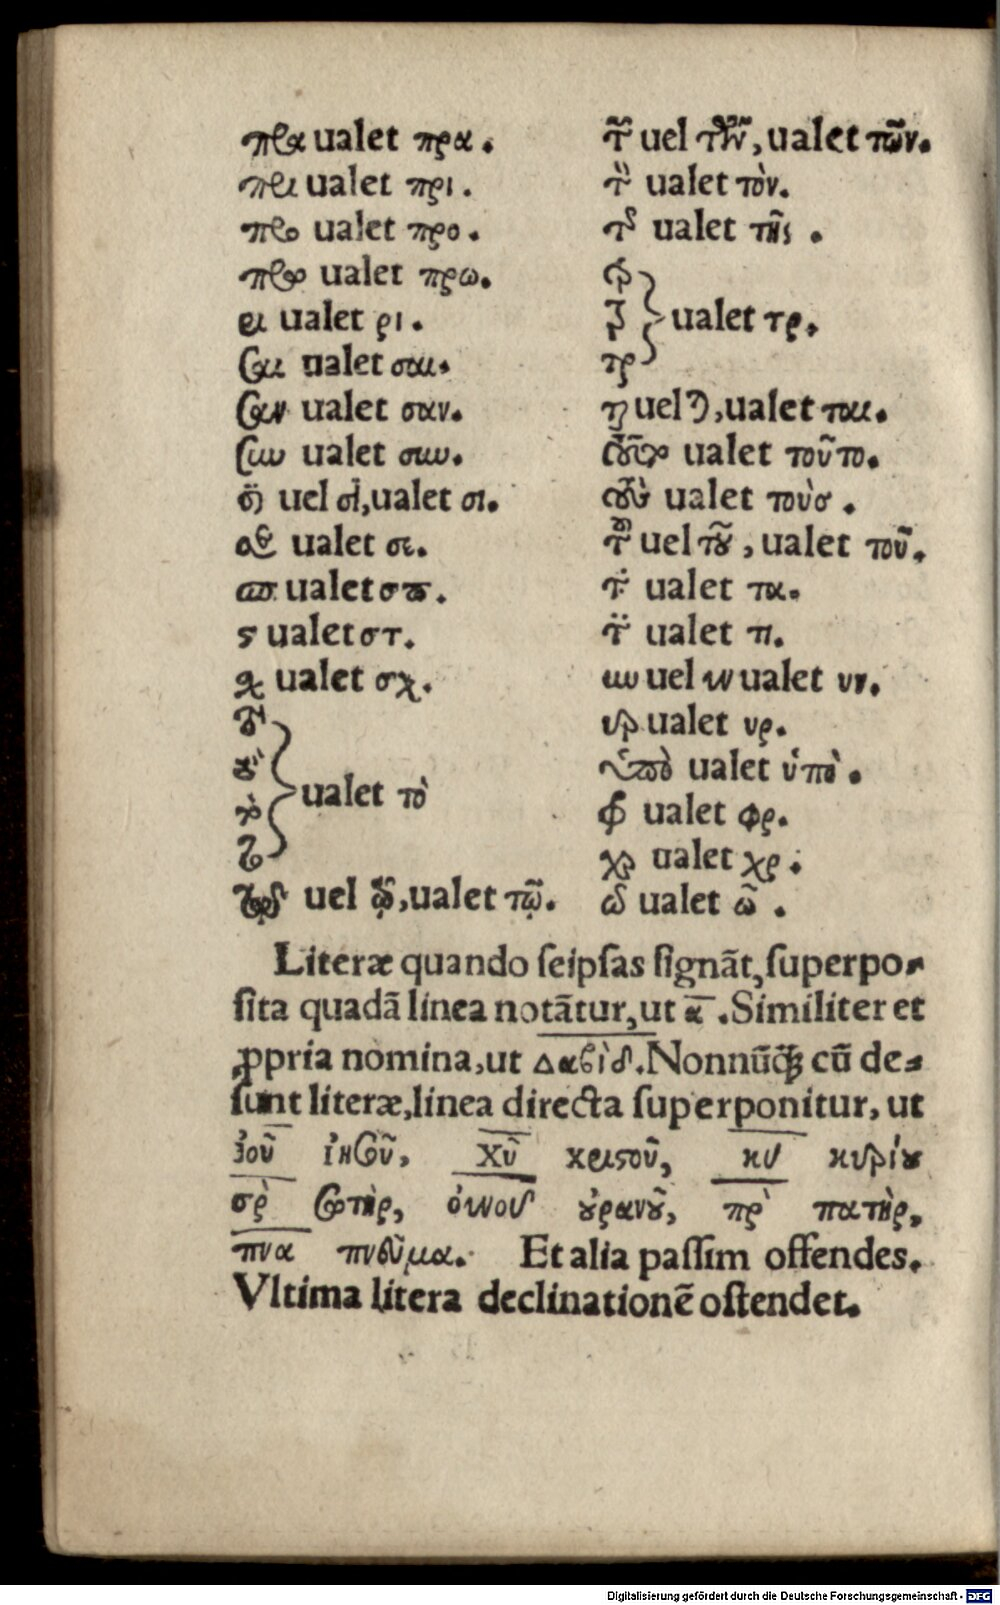 πρα ualet πρα.
πρι ualet πρι.
προ ualet προ.
πρω ualet πρω.
ρι ualet ρι.
σαι ualet σαι.
σαν ualet σαν.
συν ualet συν.
uel σι, ualet σι.
ualet
ualet
ϛ ualet στ.
σχ ualet σχ.
ualet τὸ
uel ualet τῷ.
uel ualet τῶν.
ualet τὸν.
ualet τῆς.
ualet τρ.
uel ualet ται.
ualet τοῦτο.
ualet τοὺσ.
uel τȣ͂, ualet τοῦ.
ualet τα.
ualet
υν uel ualet υν.
υρ ualet υρ.
ὑπὸ ualet ὑπὸ.
φρ ualet φρ.
χρ ualet χρ.
ualet ῶ.
Literæ quando ſeipſas ſignãt, ſuperpo-
ſita quadã linea notãtur, ut α̅. Similiter et
ꝓpria nomina, ut Δαβὶδ. Nonnũq̃ꝫ cũ de-
ſunt literæ, linea directa ſuperponitur, ut
ἰοῦ ἰησοῦ, χῦ χριϛοῦ, κυ κυρίȣ
σρ̀ σωτὴρ, ȣ̓ρανȣ͂, πρ̀ πατὴρ,
πνα πνεῦμα. Et alia paſſim offendes.
Vltima litera declinationẽ oſtendet.
Digitalisierung gefördert durch die Deutsche Forschungsgemeinschaft - DFG